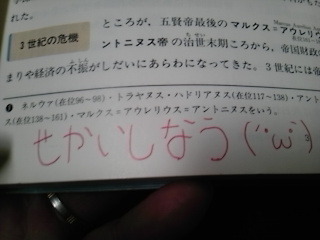 れた。
ところが、五賢帝最後のマルクス=アウレリウス
3世紀の危機
ントニヌス帝の治世末期ころから、帝国財政
まりや経済の不振がしだいにあらわになってきた。3世紀には帝
❶ ネルウァ(在位96〜98)・トラヤヌス・ハドリアヌス(在位117〜138)・アント
ス(在位138〜161)・マルクス=アウレリウス=アントニヌスをいう。
せかいしなう(´・ω・`)